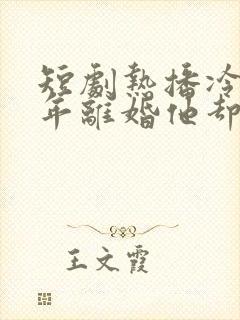 短劇熱播冷
年離婚他却
王文霞